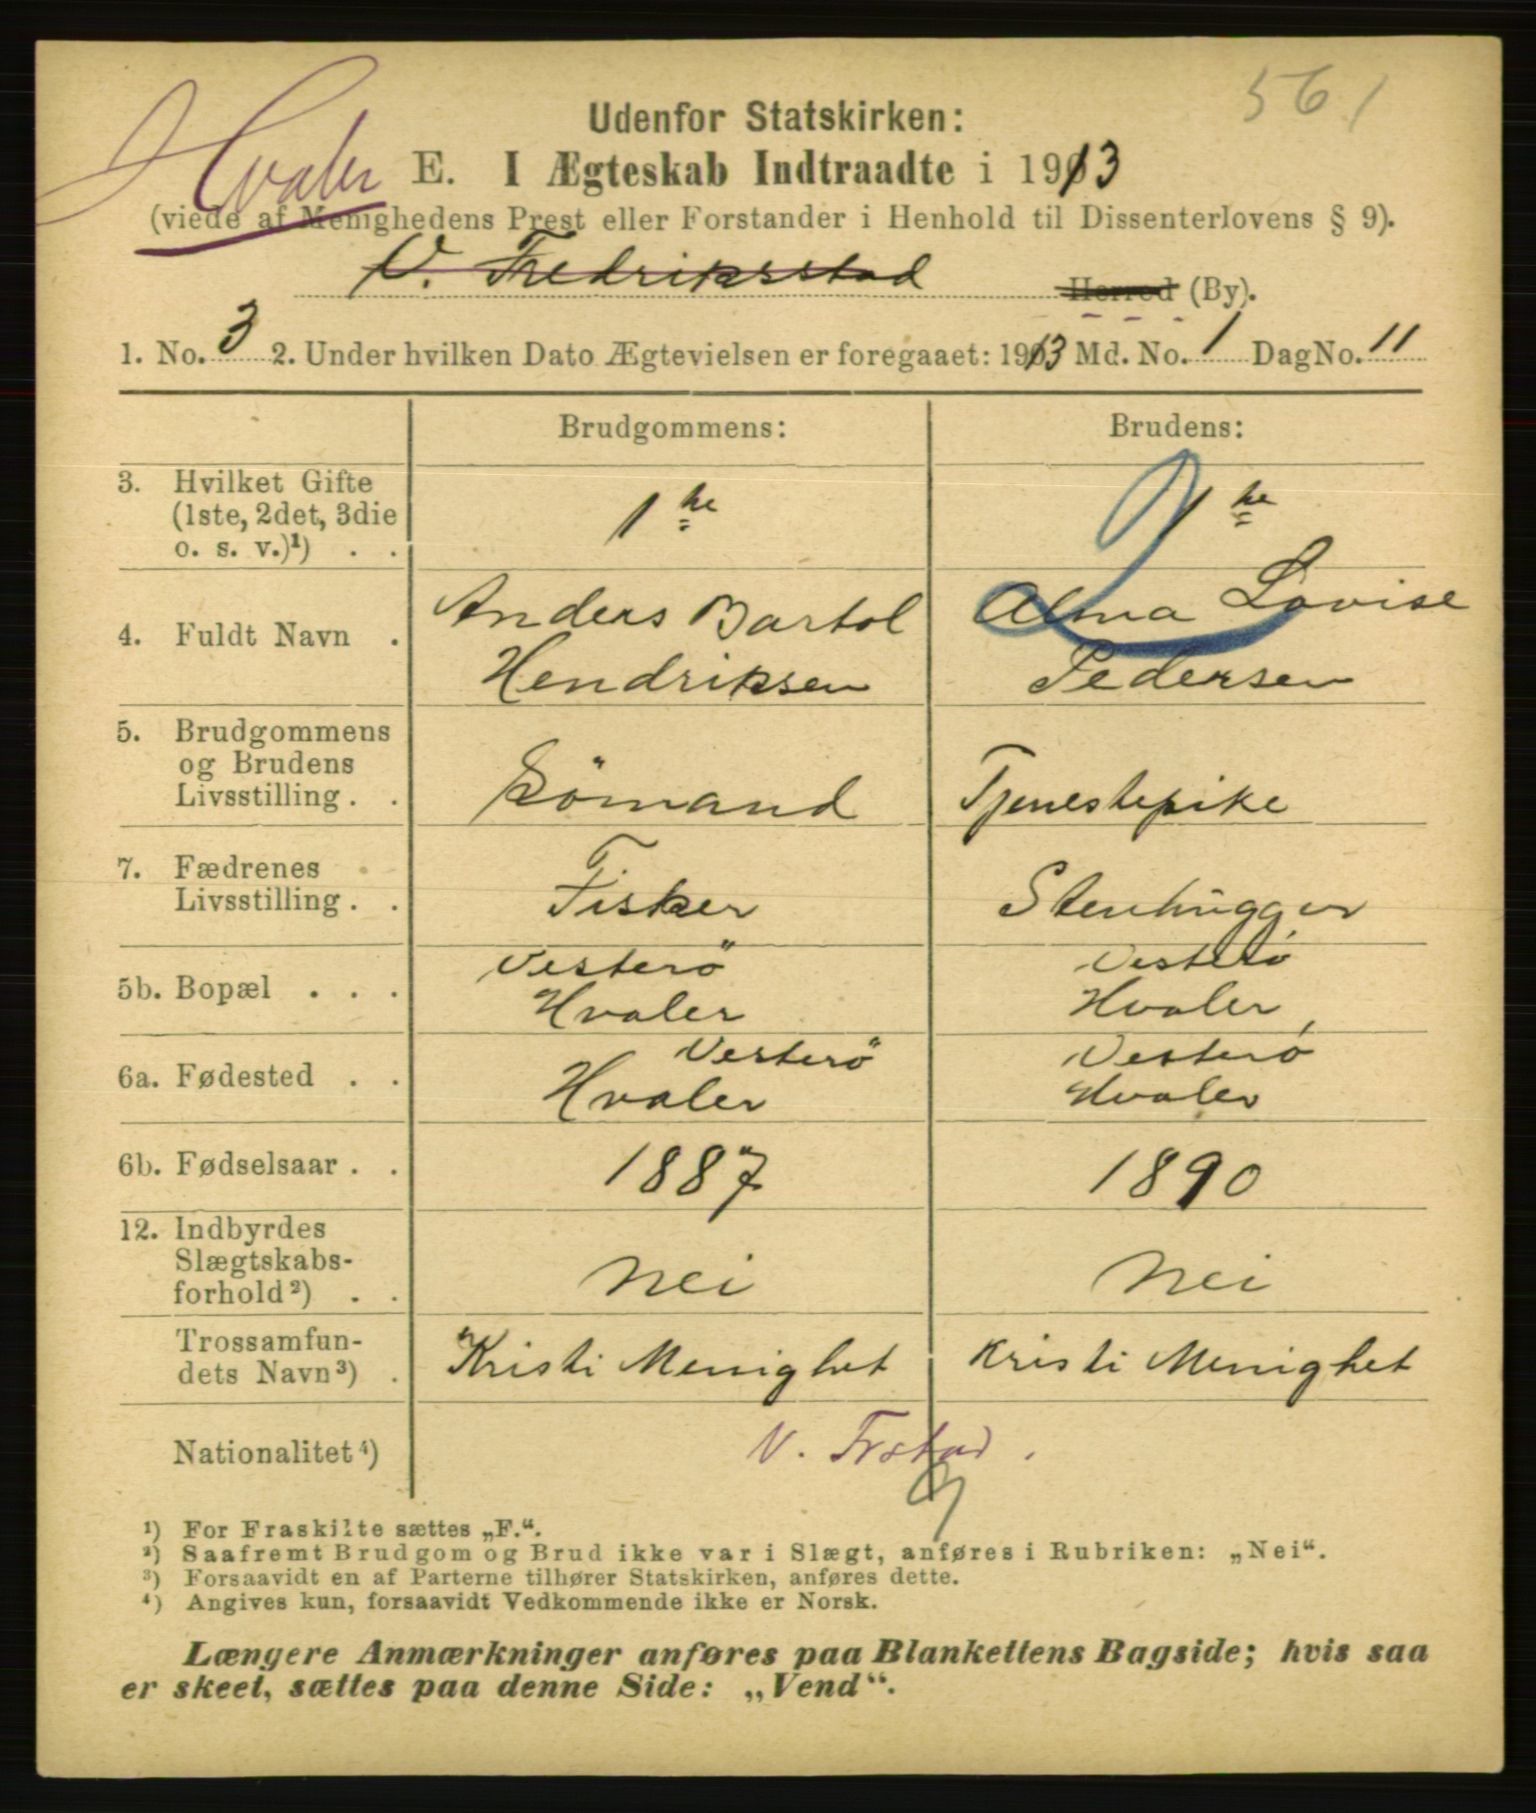 561
Hvaler
Udenfor Statskirken:
E. I Ægteskab Indtraadte i 1913
(viede af Menighedens Prest eller Forstander i Henhold til Dissenterlovens § 9).
V. Fredriksstad Herred (By).
1. No. 3 2. Under hvilken Dato Ægtevielsen er foregaaet: 1913 Md. No. 1 Dag No. 11
Brudgommens: Brudens:
3. Hvilket Gifte
(1ste, 2det, 3die
o. s. v.)¹) . .
1ste 1ste
4. Fuldt Navn .
Anders Bartol
Hendriksen
Alma Lovise
Pedersen
5. Brudgommens
og Brudens
Livsstilling . .
Sömand Tjenestepike
7. Fædrenes
Livsstilling . .
Fisker Stenhugger
5b. Bopæl . . .
Vesterö
Hvaler
Vesterö
Hvaler
6a. Fødested . .
Vesterö
Hvaler
Vesterö
Hvaler
6b. Fødselsaar . . 1887 1890
12. Indbyrdes
Slægtskabs-
forhold²) . .
Nei Nei
Trossamfun-
dets Navn³) .
Kristi Menighet Kristi Menighet
Nationalitet⁴)
V. Frstad.
¹) For Fraskilte sættes „F.“.
²) Saafremt Brudgom og Brud ikke var i Slægt, anføres i Rubriken: „Nei“.
³) Forsaavidt en af Parterne tilhører Statskirken, anføres dette.
⁴) Angives kun, forsaavidt Vedkommende ikke er Norsk.
Længere Anmærkninger anføres paa Blankettens Bagside; hvis saa
er skeet, sættes paa denne Side: „Vend“.